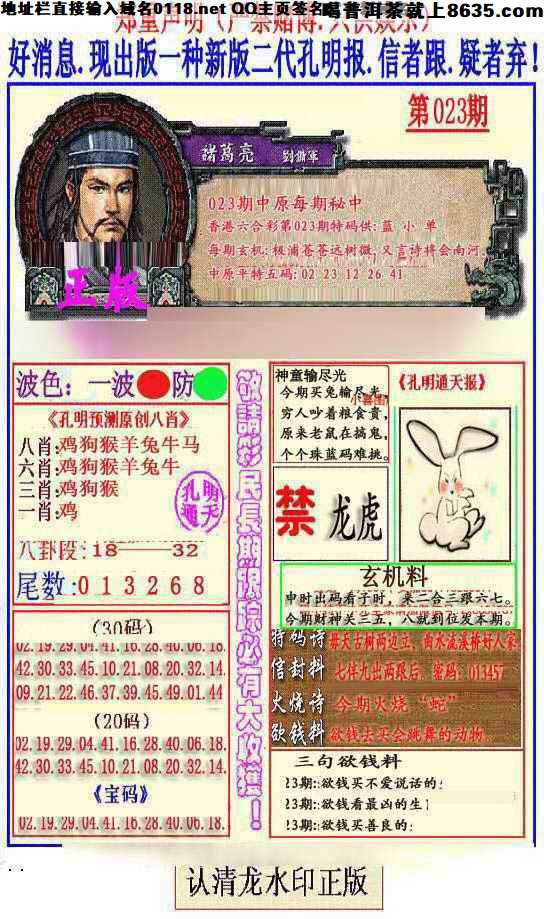 地址栏直接输入域名0118.net QQ主页签名 喝普洱茶就上8635.com
郑重声明(严禁赌博.只供娱乐)
好消息.现出版一种新版二代孔明报.信者跟.疑者弃!
第023期
諸葛亮 劉備軍
023期中原每期秘中
香港六合彩第023期特码供:蓝 小 单
每期玄机:极浦苍苍远树微,又言诗将会南河
中原平特五码:02 23 12 26 41
正版
波色:一波 防
《孔明预测原创八肖》
八肖:鸡狗猴羊兔牛马
六肖:鸡狗猴羊兔牛
三肖:鸡狗猴
一肖:鸡
孔明通天
八卦段:18——32
尾数:013268
(30码)
02.19.29.04.41.16.28.40.06.18.
42.30.33.45.10.21.08.20.32.14.
09.21.22.46.37.39.45.49.01.44
(20码)
02.19.29.04.41.16.28.40.06.18.
42.30.33.45.10.21.08.20.32.14.
《宝码》
02.19.29.04.41.16.28.40.06.18.
敬請彩民長期跟踪必有大收獲!
神童输尽光
今期买兔输尽光,
穷人吵着粮食贵,
原来老鼠在搞鬼,
个个珠蓝码难挑。
《孔明通天报》
禁 龙虎
玄机料
申时出码看子时,来二合三跟六七。
今期财神关三五,八就到位发本期。
特码诗
信封料 七伴九出两跟后,密码:013457
火烧诗 今期火烧“蛇”
欲钱料 欲钱去买会跳舞的动物.
三句欲钱料
23期::欲钱买不爱说话的:
23期::欲钱看最凶的生
23期::欲钱买善良的:
认清龙水印正版